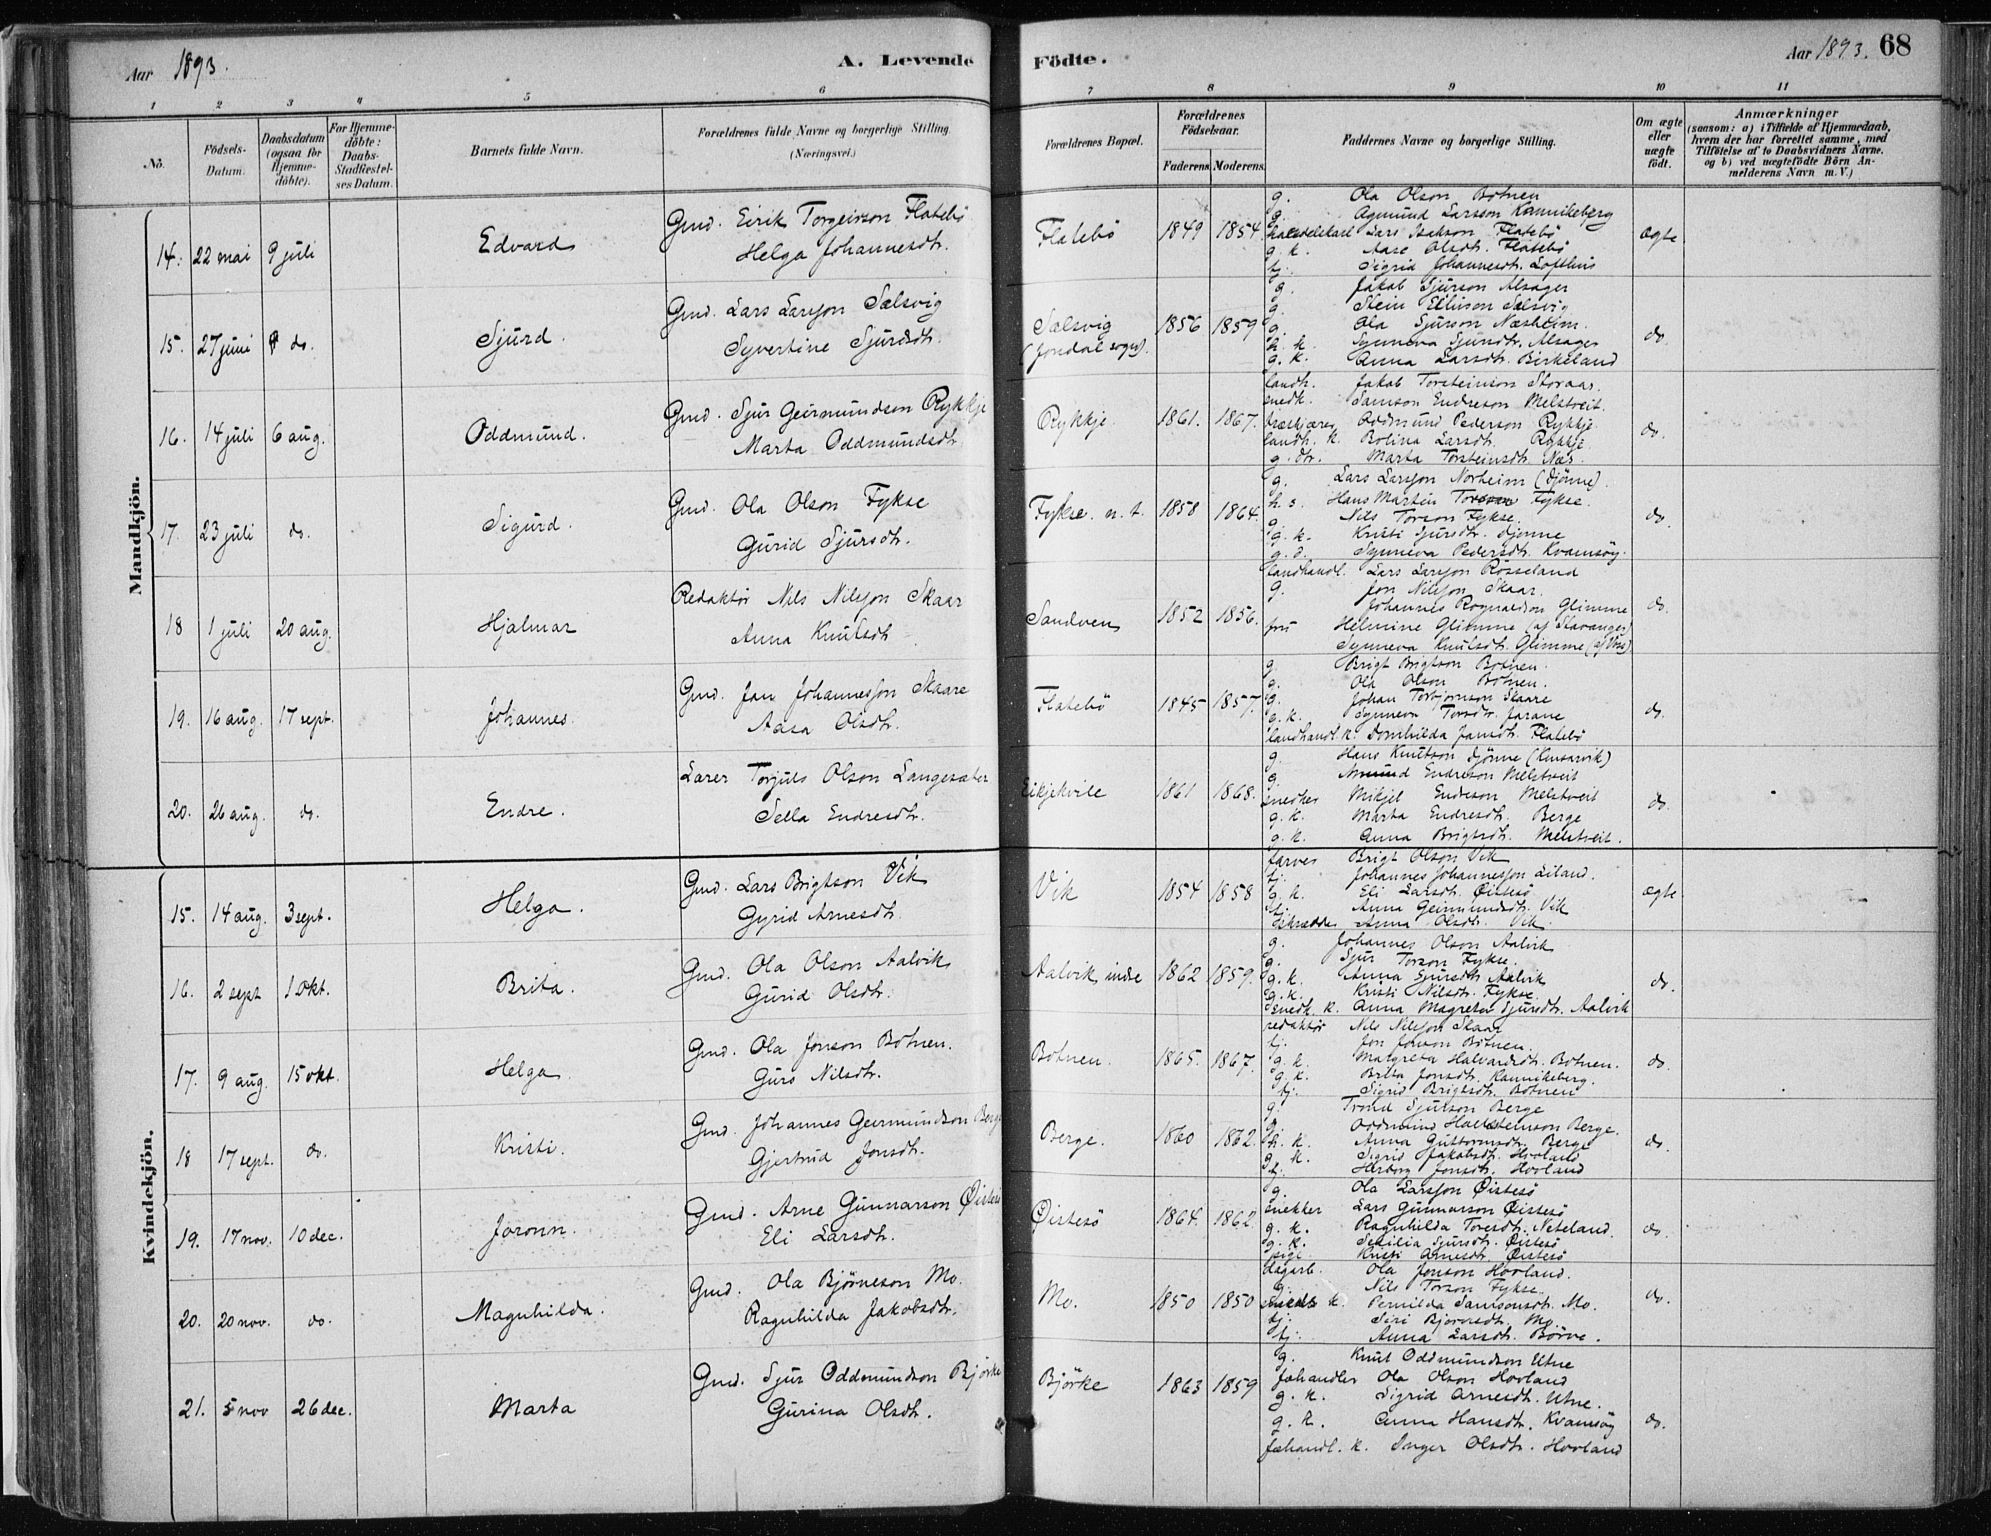 Aar 1893.
A. Levende Födte.
Aar 1893. 68
1 2 3 4 5 6 7 8 9 10 11
No.
Födsels-Datum.
Daabsdatum (ogsaa for Hjemme-döbte).
For Hjemme-döbte: Daabs-Stadfæstel-ses Datum.
Barnets fulde Navn.
Forældrenes fulde Navne og borgerlige Stilling. (Næringsvei.)
Forældrenes Bopæl.
Forældrenes Födselsaar. Faderens. Moderens.
Faddernes Navne og borgerlige Stilling.
Om ægte eller uægte födt.
Anmærkninger (saasom: a) i Tilfælde af Hjemmedaab, hvem der har forrettet samme, med Tilföielse af to Daabsvidners Navne, og b) ved uægtefödte Börn An-melderens Navn m. V.)
Mandkjön.
14. 22 mai 9 juli Edvard
Gmd. Eirik Torgeirson Flatebö
Helga Johannesdtr.
Flatebö 1849 1854.
g. Ola Olson Botnen
g. Agmund Larsson Kannikeberg
handelskarl Lars Isakson Flatebö
g. k. Aase Olsdtr. Flatebö
tj. Sigrid Johannesdtr. Lofthus
ægte
15. 27 juni do. Sjurd.
Gmd. Lars Larsson Sælsvig
Syvertine Sjurdsdtr.
Sælsvig (Jondal sogn). 1856 1859
g. Jakob Sjurson Alsager
g. Stein Ellinson Sælsvig
g. Ola Sjurson Næsheim.
h. k. Synneva Sjursdtr. Alsager
g. k. Anna Larsdtr. Birkeland
do.
16. 14 juli 6 aug. Oddmund.
Gmd. Sjur Geirmundson Rykkje
Marta Oddmundsdtr.
Rykkje 1861. 1867.
landh. Jakob Torsteinson Storaas.
snedk. Samson Endreson Melstveit.
Oddmund Pederson Rykkje
landh. k. Bolina Larsdtr. Rykkje
g. dtr. Marta Torsteinsdtr. Næs.
do.
17. 23 juli do. Sigurd.
Gmd. Ola Olson Fykse
Gurid Sjursdtr.
Fykse n. t. 1858 1864.
g. Lars Larsson Norheim (Djönne).
h. s. Hans Martin Fykse.
g. Nils Torson Fykse.
g. k. Kristi Sjursdtr. Djönne
g. d. Synneva Pedersdtr. Kvamsöy.
do.
18 1 juli 20 aug. Hjalmar
Redaktör Nils Nilsson Skaar
Anna Knutsdtr.
Sandven 1852 1856.
landhandl. Lars Larsson Rosseland
g. Jon Nilsson Skaar.
Johannes Rognaldson Glimme
fru Helmine Glimme (af Stavanger)
Synneva Knutsdtr. Glimme (af Voss)
do.
19. 16 aug. 17 sept. Johannes.
Gmd. Jan Johannesson Skaare
Aasa Olsdtr.
Flatebö 1845 1857.
g. Brigt Brigtson Botnen.
g. Ola Olson Botnen.
g. Johan Torbjörnson Skaare
g. k. Synneva Torsdtr. Jarane
landhandl. k. Domhilda Jansdtr. Flatebö
do.
20. 26 aug. do. Endre.
Lærer Torjuls Olson Langesæter
Sella Endresdtr.
Eikjekvile 1861 1868.
g. Hans Knutson Djönne (Kinsarvik)
g. Amund Endreson Melstveit
snedker Mikjel Endreson Melstveit
g. k. Marta Endresdtr. Berge
g. k. Anna Brigtsdtr. Melstveit.
do.
Kvindekjön.
15. 14 aug. 3 sept. Helga.
Gmd. Lars Brigtson Vik
Gyrid Arnesdtr.
Vik 1854 1858
farver Brigt Olson Vik
tj. Johannes Johannesson Liland.
g. k. Eli Larsdtr. Öistesö
tj. Anna Geirmundsdtr. Vik
Anna Olsdtr. Vik
ægte
16. 2 sept 1 okt. Brita.
Gmd. Ola Olson Aalvik
Gurid Olsdtr.
Aalvik indre 1862 1859.
g. Johannes Olson Aalvik
g. Sjur Torson Fykse.
g. k. Anna Sjursdtr. Aalvik
g. k. Kristi Nilsdtr. Fykse.
snedk. k. Anna Magreta Sjursdtr. Aalvik
do.
17. 9 aug. 15 okt. Helga.
Gmd. Ola Jonson Botnen.
Guro Nilsdtr.
Botnen. 1865. 1867.
redaktör Nils Nilsson Skaar
tj. Jon Jonson Botnen.
g. k. Malgreta Halvardsdtr. Botnen.
g. k. Brita Jonsdtr. Kannikeberg.
tj. Sigrid Brigtsdtr. Botnen
do.
18 17 sept. do. Kristi.
Gmd. Johannes Geirmundson Berge
Gjertrud Jonsdtr.
Berge. 1860 1862.
g. Trond Sjurson Berge
g. Oddmund Halsteinson Berge.
h. k. Anna Guttormsdtr. Berge
g. k. Sigrid Jakobsdtr. Hovland
tj. Herborg Jonsdtr. Hovland
do.
19. 17 nov. 10 dec. Joronn.
Gmd. Arne Gunnarson Öistesö
Eli Larsdtr.
Öistesö 1864. 1862.
g. Ola Larsson Öistesö
snekker Lars Gunnarson Öistesö
g. k. Ragnhilda Toresdtr. Neteland.
g. k. Sesilia Sjursdtr. Öistesö
pige Kristi Arnesdtr. Öistesö
do.
20. 20 nov. do. Magnhilda.
Gmd. Ola Björneson Mo.
Ragnhilda Jakobsdtr.
Mo. 1850 1850
dagarb. Ola Jonson Hovland.
g. Nils Torson Fykse.
snedk k. Pernilda Samsonsdtr. Mo.
tj. Siri Björnesdtr. Mo
tj. Anna Larsdtr. Börve.
do.
21. 5 nov 26 dec. Marta
Gmd. Sjur Oddmundson Björke
Gurina Olsdtr.
Björke 1863 1859
g. Knut Oddmundson Utne
fæhandler Ola Olson Hovland
g. k. Sigrid Arnesdtr. Utne.
g. k. Anna Hansdtr. Kvamsöy
fæhandl. k. Inger Olsdtr. Hovland
do.